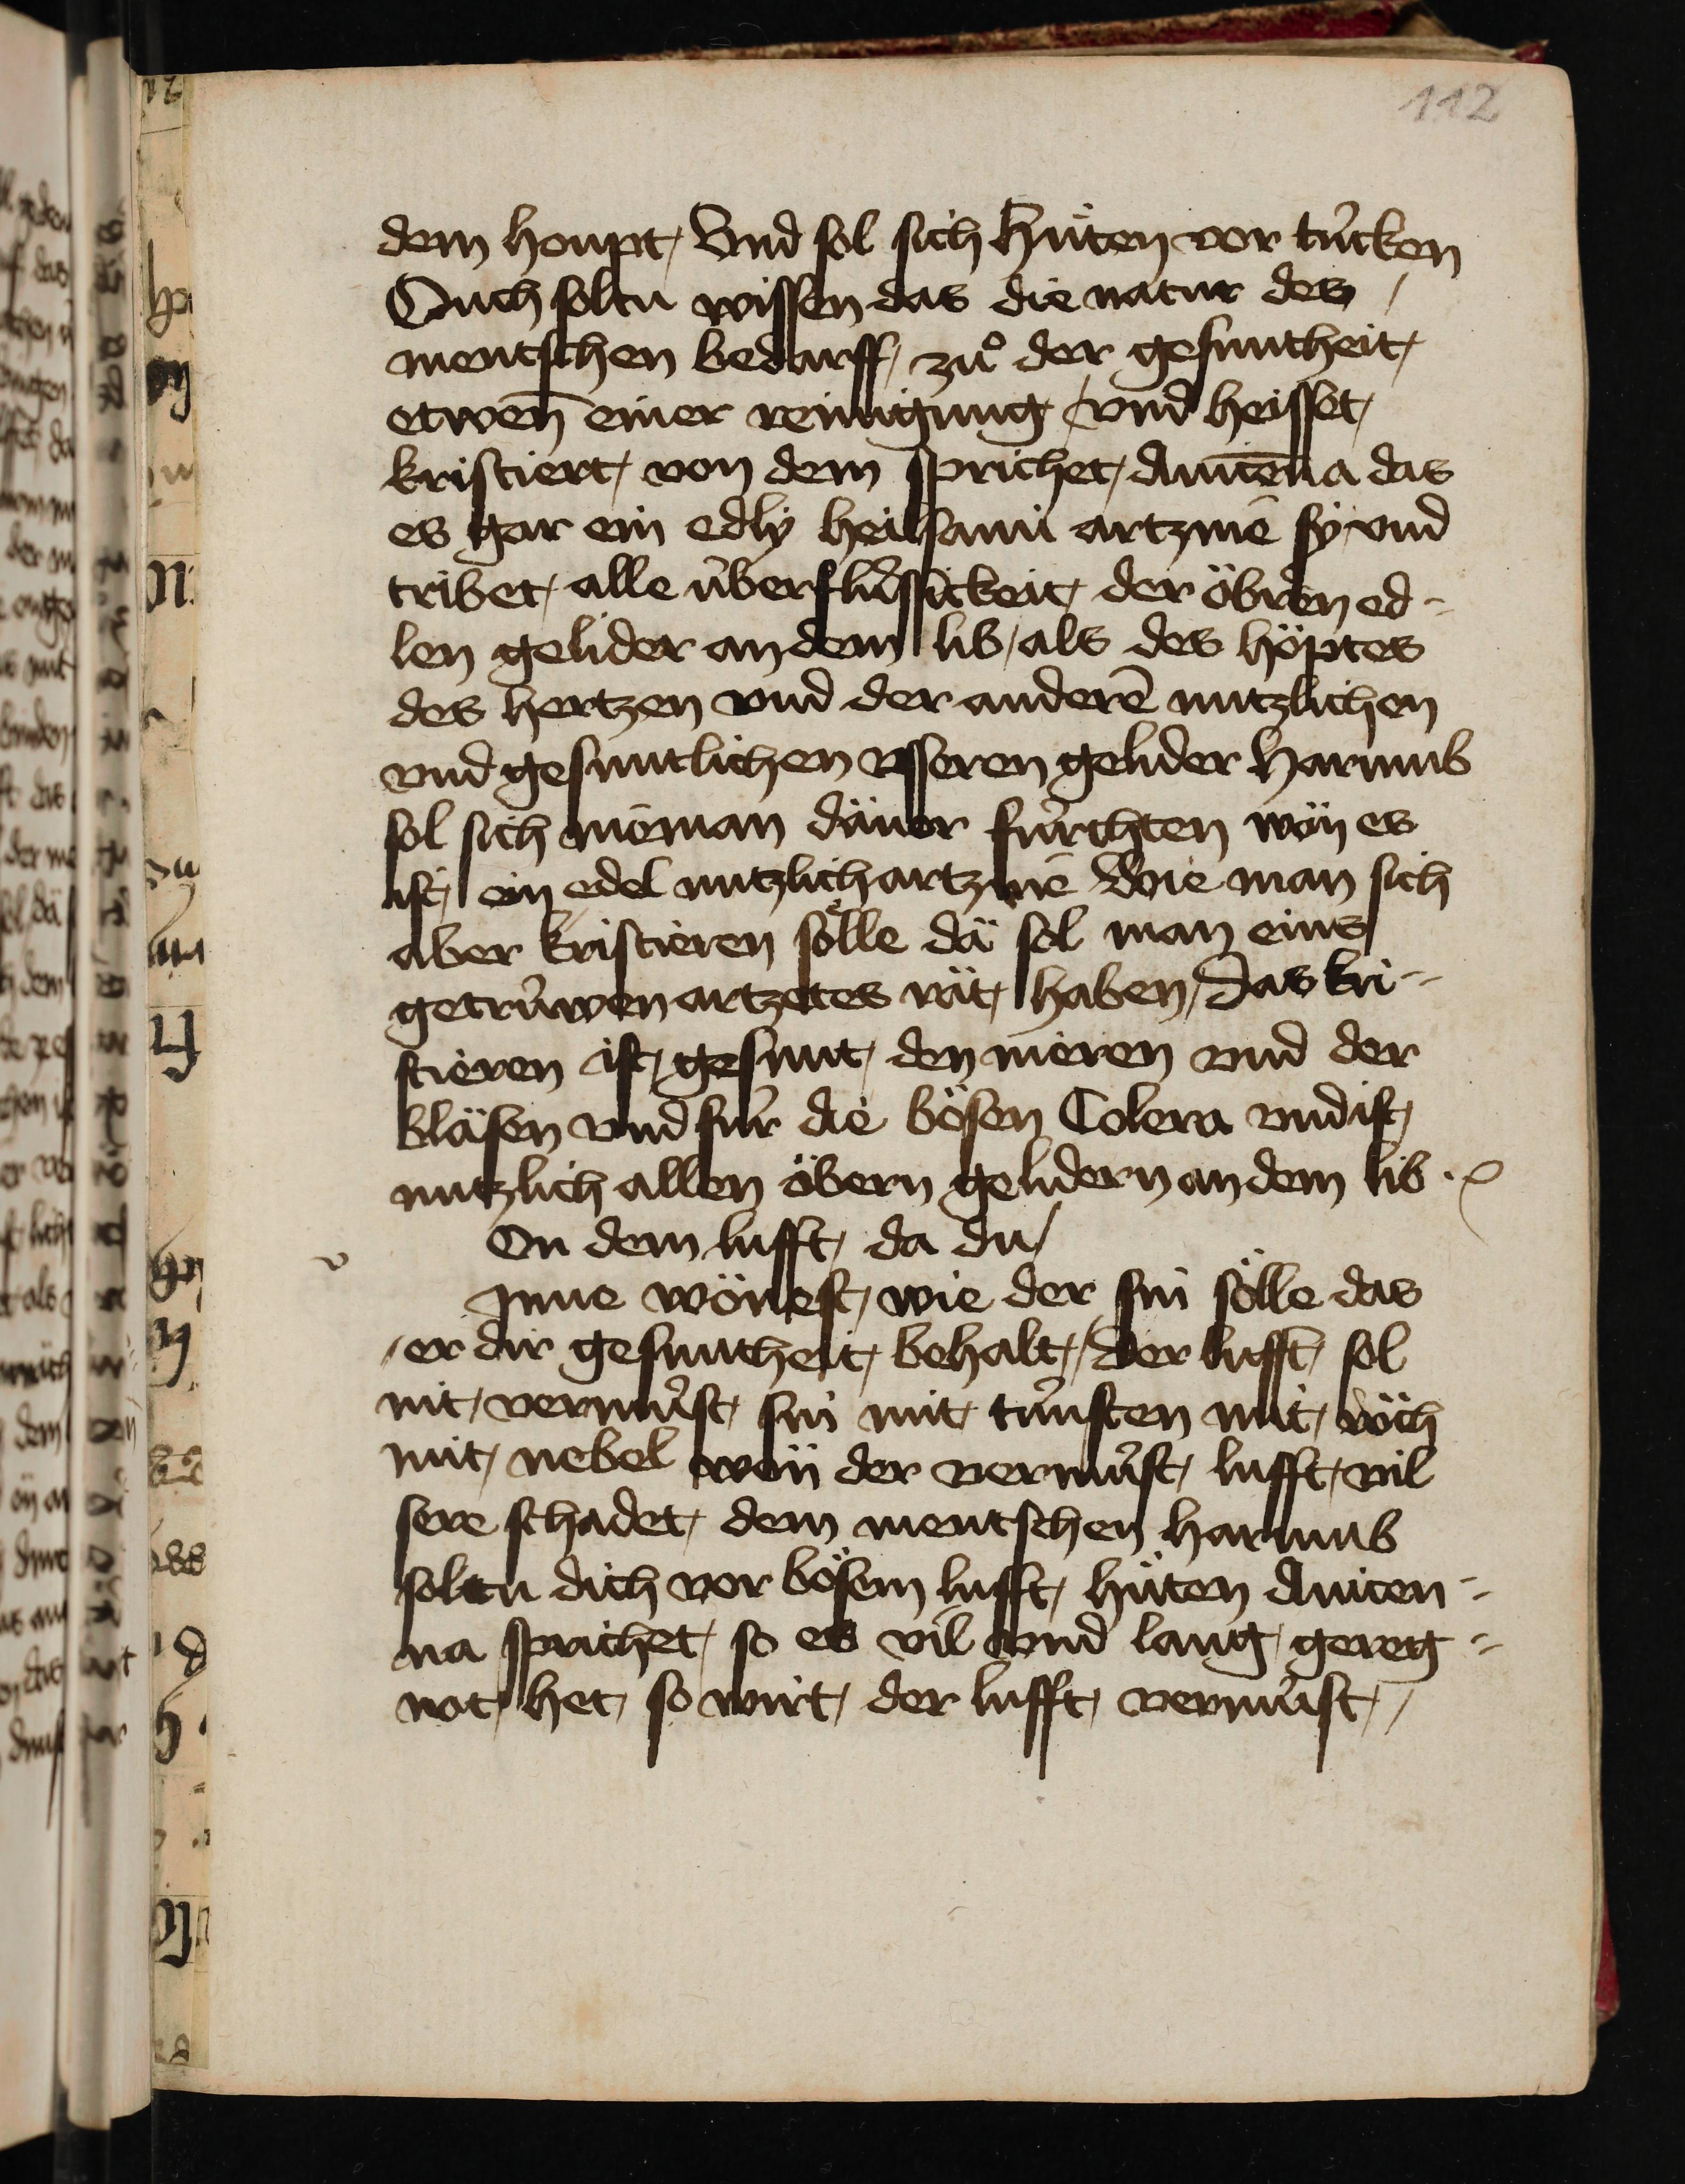 112
dem houpt, Vnd sol sich hüten vor tücken
Ouch soltu wissen das die natur des /
mentschen bedarff, zuͦ der gesuntheit,
etwen̄ einer reinigung / vnd heisset,
kristiert, von dem sprichet, Auicēna das
es gar ein edly heilsami artznie sy vnd
tribet, alle überflüssickeit, der öbren ed-
len gelider an dem lib / als des höptes
des hertzen vnd der anderē nutzlichen
vnd gesuntlichen vsseren gelider Harumb
sol sich niēman däuor fürchten wön es
ist, ein edel nutzlich artznie Wie man sich
aber kristieren sölle dä sol man eins
getrüwen artzetes rät, haben / Das kri-
stieren ist, gesunt, den nieren vnd der
bläsen vnd für die bösen Colera vnd ist,
nutzlich allen öbern gelidern an dem lib .
v On dem lufft, da du /
Inne wönest, wie der sin sölle das
/ er dir gesuntheit, behalt, / Der lufft, sol
nit, vermüst, sin mit, tünsten mit, röch
mit, nebel wön der vermüst, lufft, vil
sere schadet, dem mentschen Harumb
soltu dich vor bösem lufft, hüten Auicen-
na sprichet, so es vil vnd lang, gereg-
not, het, so wirt, der lufft, vermüst, /